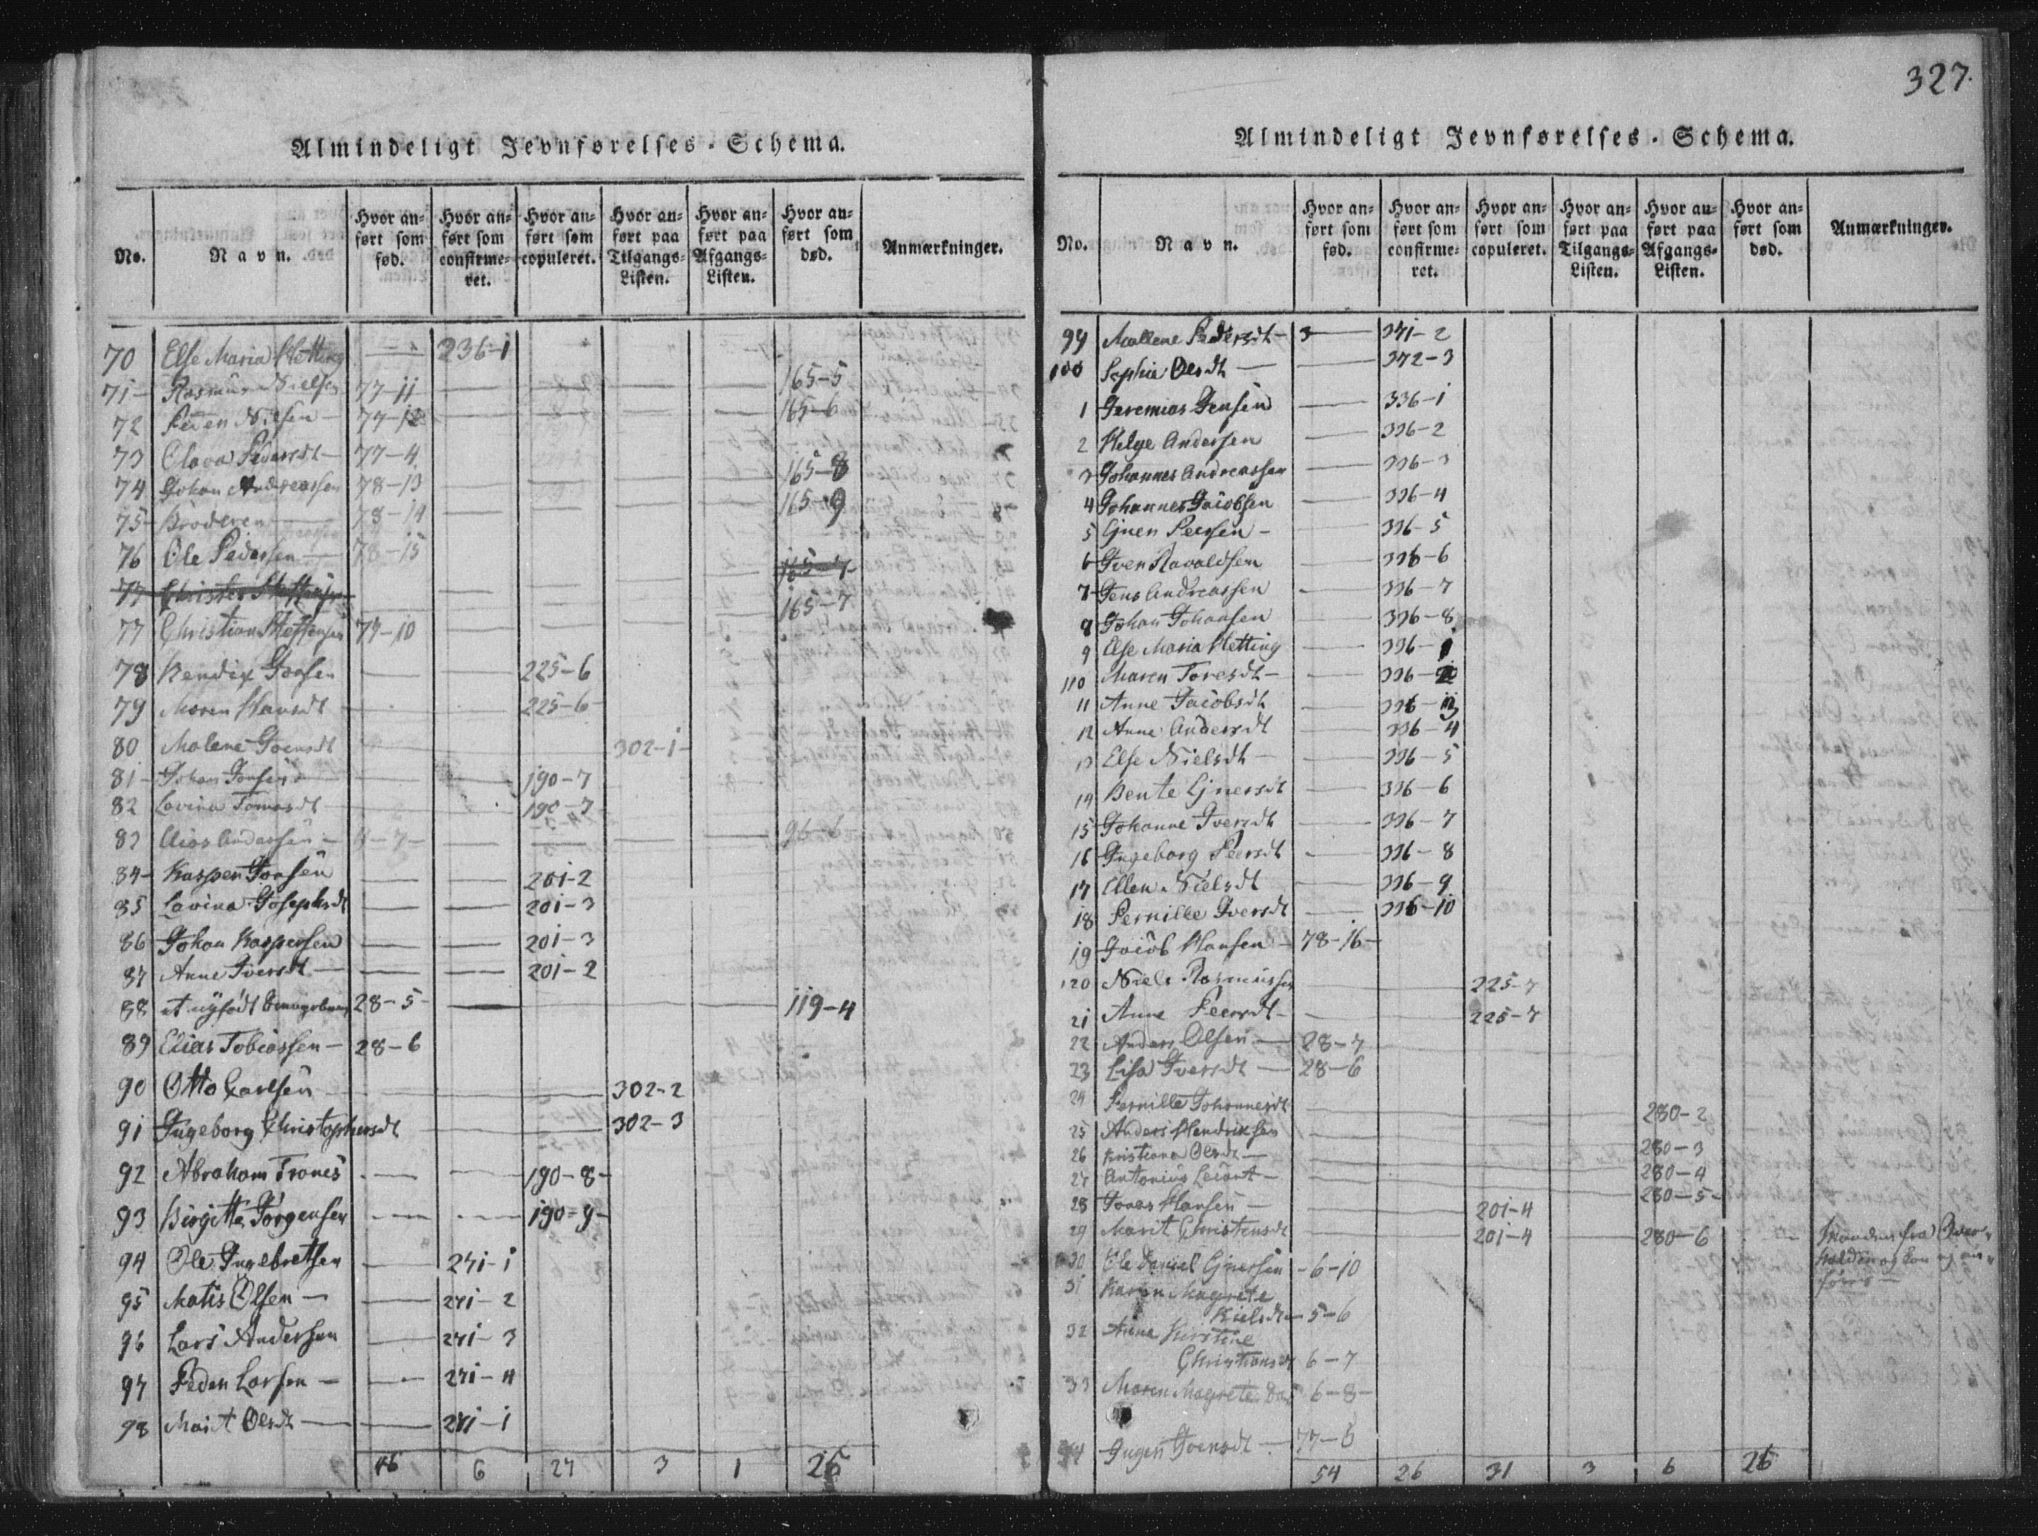 Almindeligt Jevnførelses-Schema.
No. Navn. Hvor anført som fød. Hvor anført som confirmeret. Hvor anført som copuleret. Hvor anført paa Tilgangs-Listen. Hvor anført paa Afgangs-Listen. Hvor anført som død. Anmærkninger.
70 Else Maria Hetting 236-1
71 Rasmus Nielsen 77-11 165-5
72 Nielsen 77-12 165-6
73 Olava Pedersdt 77-4
74 Johan Andreassen 78-13 165-8
75 Broderen 78-14 165-9
76 Ole Pedersen 78-15
77 Christen Steffensen 165-7
77 Christian Steffensen 77-10 165-7
78 Hendix Joosen 225-6
79 Maren Hansdt 225-6
80 Malene Joensdt 302-1
81 Johan Jonsen 190-7
82 Lovina Tomasdt 190-7
83 Elias Andersen 4-7 96-6
84 Kasper Jonsen 201-2
85 Lovina Josephsdt 201-3
86 Johan Kaspersen 201-3
87 Anne Iversdt 201-2
88 et nyfødt 28-5 119-4
89 Elias Tobiassen 28-6
90 Otto Carlsen 302-2
91 Ingeborg Christophersdt 302-3
92 Abraham Trones 190-8
93 Birgitte Jørgensen 190-9
94 Ole Ingebretsen 241-1
95 Matis Olsen 241-2
96 Lars Andersen 241-3
97 Peder Larsen 241-4
98 Marit Olsdt 241-1
46 6 27 3 1 26
327.
Almindeligt Jevnførelses-Schema.
No. Navn. Hvor anført som fød. Hvor anført som confirmeret. Hvor anført som copuleret. Hvor anført paa Tilgangs-Listen. Hvor anført paa Afgangs-Listen. Hvor anført som død. Anmærkninger.
99 Mallene Pedersdt 341-2
100 Sophie Olsdt 342-3
1 Jeremias Jensen 336-1
2 Helge Andersen 336-2
3 Johannes Andreassen 336-3
4 Johannes Jacobsen 336-4
5 Ejner Peersen 336-5
6 Iver Ravaldsen 336-6
7 Jens Andreassen 336-7
8 Johan Johansen 336-8
9 Else Maria Hetting 336-1
110 Maren Toresdt 336-2
11 Anne Jacobsdt 336-3
12 Anne Andersdt 336-4
13 Else Nielsdt 336-5
14 Bente Ejnersdt 336-6
15 Johanne Iversdt 336-7
16 Ingeborg Peersdt 336-8
17 Ellen Nielsdt 336-9
18 Pernille Iversdt 336-10
19 Jacob Hansen 78-16
120 Niels Rasmussen 225-7
21 Anne Peersdt 225-7
22 Anders Olsen 28-7
23 Lisa Iversdt 28-6
24 Pernille Johannesdt 280-2
25 Anders Hendriksen 280-3
26 Kristiana Olsdt 280-4
27 Antonius 280-5
28 Jonas Hansen 201-4
29 Marit Christensdt 201-4 280-6 fra
30 Ole Daniel Ejnersen 6-10
31 Karen Magrete
Nielsdt 5-6
32 Anne Kirstine
Christiansdt 6-7
33 Maren Magrete 6-8
34 Inger Joensdt 77-6
54 26 31 3 6 26